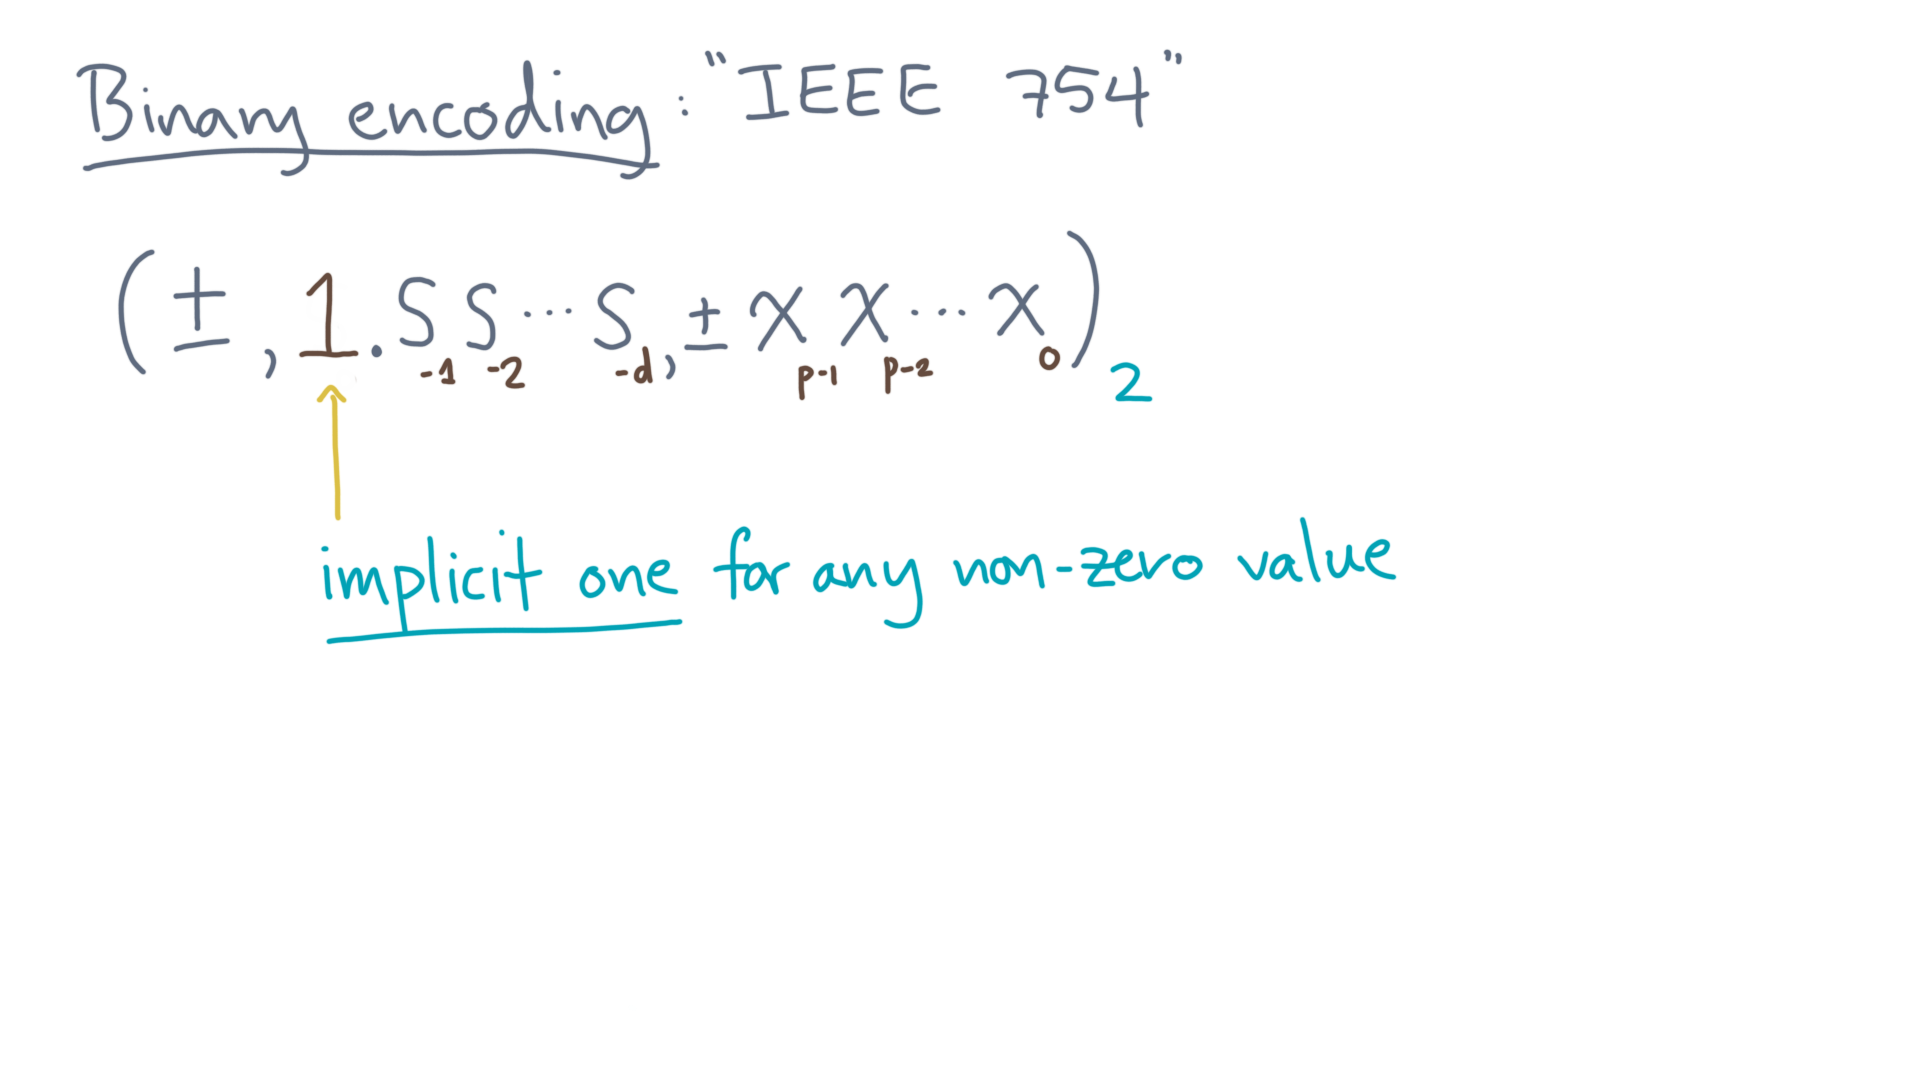 Binary encoding : "IEEE 754"
(±, 1.s₋₁s₋₂⋯s₋d, ±xₚ₋₁xₚ₋₂⋯x₀)₂
implicit one for any non-zero value